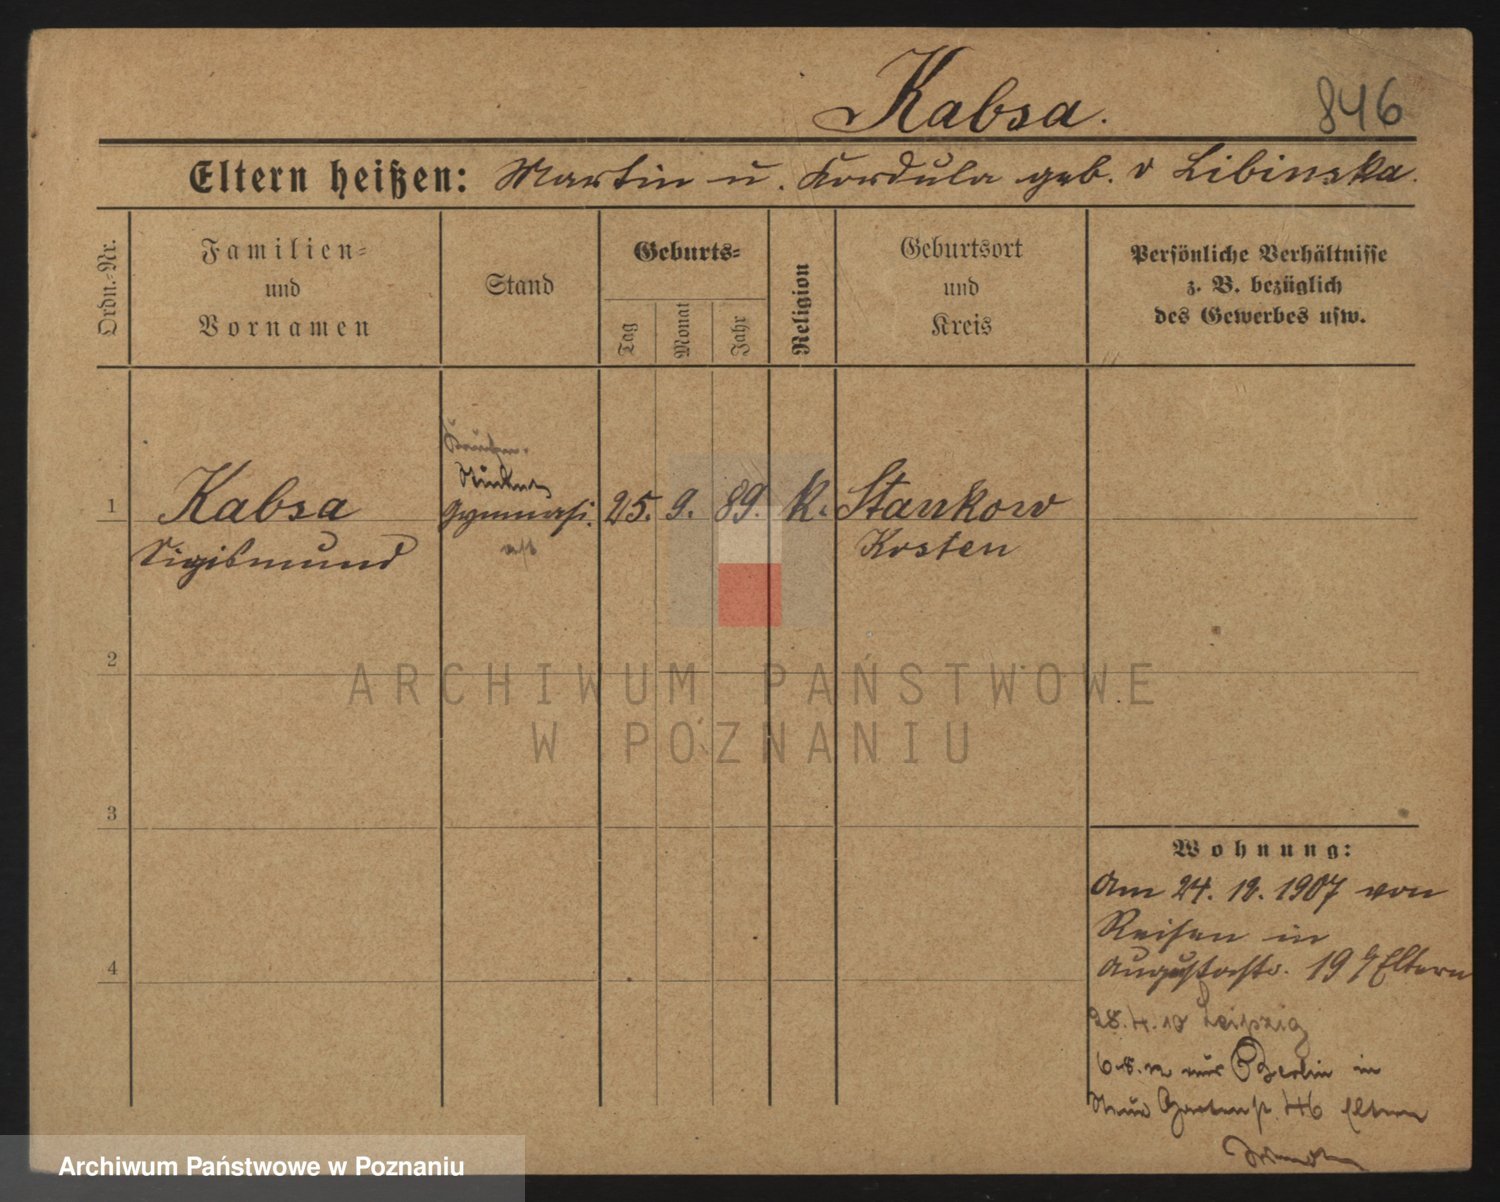 Kabsa.
846
Eltern heißen: Martin u. Kordula geb. v Libinska.
Ordn.-Nr.
Familien-
und
Vornamen
Stand
Geburts-
Tag
Monat
Jahr
Religion
Geburtsort
und
Kreis
Persönliche Verhältnisse
z. B. bezüglich
des Gewerbes usw.
1
Kabsa
Sigismund
Gymnasi.
ast
25. 9. 89. K.
Stankow
Kosten
2
ARCHIWUM PAŃSTWOWE
W POZNANIU
3
4
Wohnung:
Am 24. 12. 1907 von
Reisen in
Augustastr. 19 Eltern
28. 4. 10 Leipzig
6.8.12 aus Berlin in
Neue Gartenstr. 46 Eltern
Archiwum Państwowe w Poznaniu